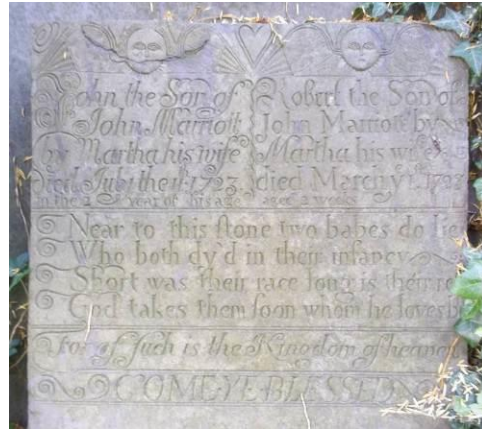 John the Son of
John Marriott
by Martha his wife
died July the 11 1723
in the 2 year of his age
Robert the Son of
John Marriott by
Martha his wife
died March ye
aged 2 weeks
Near to this stone two babes do lie
Who both dy'd in their infancy
Short was their race long is their
God takes them soon whom he loves
for of such is the Kingdom of heaven
COME YE BLESSED